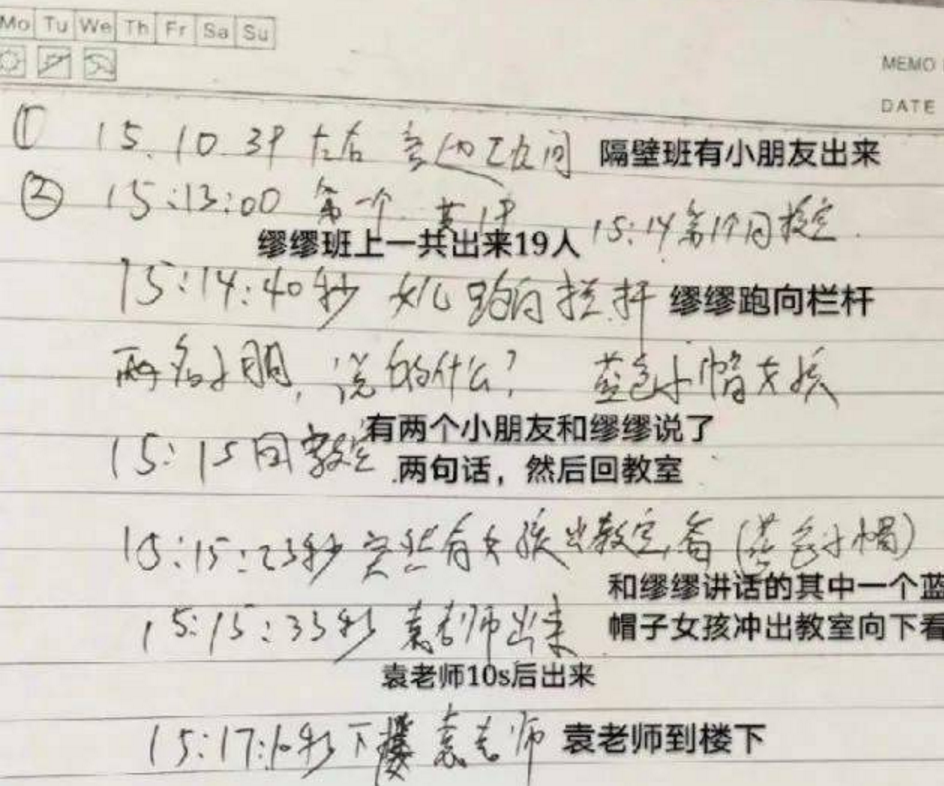 Mo Tu We Th Fr Sa Su
MEMO
DATE
① 15.10.39 左右 旁边 间 隔壁班有小朋友出来
② 15:13:00 第一个 15:14 第19 回教室
缪缪班上一共出来19人
15:14:40秒 女儿跑向栏杆 缪缪跑向栏杆
两名小朋, 说的什么? 蓝色小帽女孩
15:15回教室 有两个小朋友和缪缪说了
两句话，然后回教室
15:15:23秒 突然有女孩出教室看 (蓝色小帽)
和缪缪讲话的其中一个蓝
15:15:33秒 袁老师出来 帽子女孩冲出教室向下看
袁老师10s后出来
15:17:10秒下楼 袁老师 袁老师到楼下